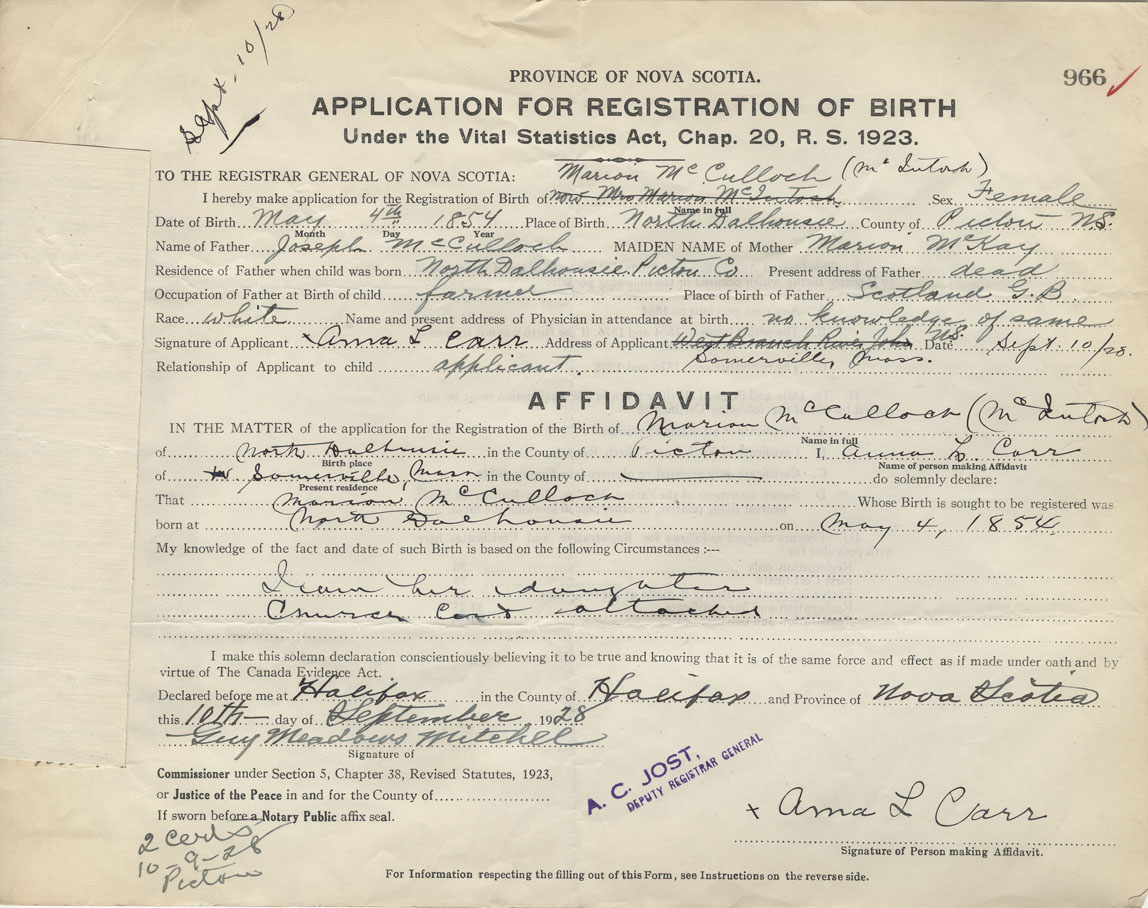 Sept. 10/28
PROVINCE OF NOVA SCOTIA.
966
APPLICATION FOR REGISTRATION OF BIRTH
Under the Vital Statistics Act, Chap. 20, R. S. 1923.
TO THE REGISTRAR GENERAL OF NOVA SCOTIA: Marion McCulloch (McIntosh)
I hereby make application for the Registration of Birth of now Mrs Marion McIntosh Sex Female
Name in full
Date of Birth May 4th 1854 Place of Birth North Dalhousie County of Pictou N.S.
Month Day Year
Name of Father Joseph McCulloch MAIDEN NAME of Mother Marion McKay
Residence of Father when child was born North Dalhousie Pictou Co Present address of Father dead
Occupation of Father at Birth of child farmer Place of birth of Father Scotland G.B.
Race white Name and present address of Physician in attendance at birth no knowledge of same
Signature of Applicant x Anna L Carr Address of Applicant West Branch River John N.S. Date Sept. 10/28.
Somerville, Mass.
Relationship of Applicant to child applicant.
AFFIDAVIT
IN THE MATTER of the application for the Registration of the Birth of Marion McCulloch (McIntosh)
Name in full
of North Dalhousie in the County of Pictou I, Anna L. Carr
Birth place Name of person making Affidavit
of Somerville, Mass in the County of do solemnly declare:
Present residence
That Marion McCulloch Whose Birth is sought to be registered was
born at North Dalhousie on May 4, 1854
My knowledge of the fact and date of such Birth is based on the following Circumstances :---
I am her daughter
Church Cert attached
I make this solemn declaration conscientiously believing it to be true and knowing that it is of the same force and effect as if made under oath and by
virtue of The Canada Evidence Act.
Declared before me at Halifax in the County of Halifax and Province of Nova Scotia
this 10th day of September 1928
Guy Meadows Mitchell
Signature of
Commissioner under Section 5, Chapter 38, Revised Statutes, 1923,
or Justice of the Peace in and for the County of
If sworn before a Notary Public affix seal.
A. C. JOST,
DEPUTY REGISTRAR GENERAL
x Anna L Carr
Signature of Person making Affidavit.
2 certs
10-9-28
Pictou
For Information respecting the filling out of this Form, see Instructions on the reverse side.